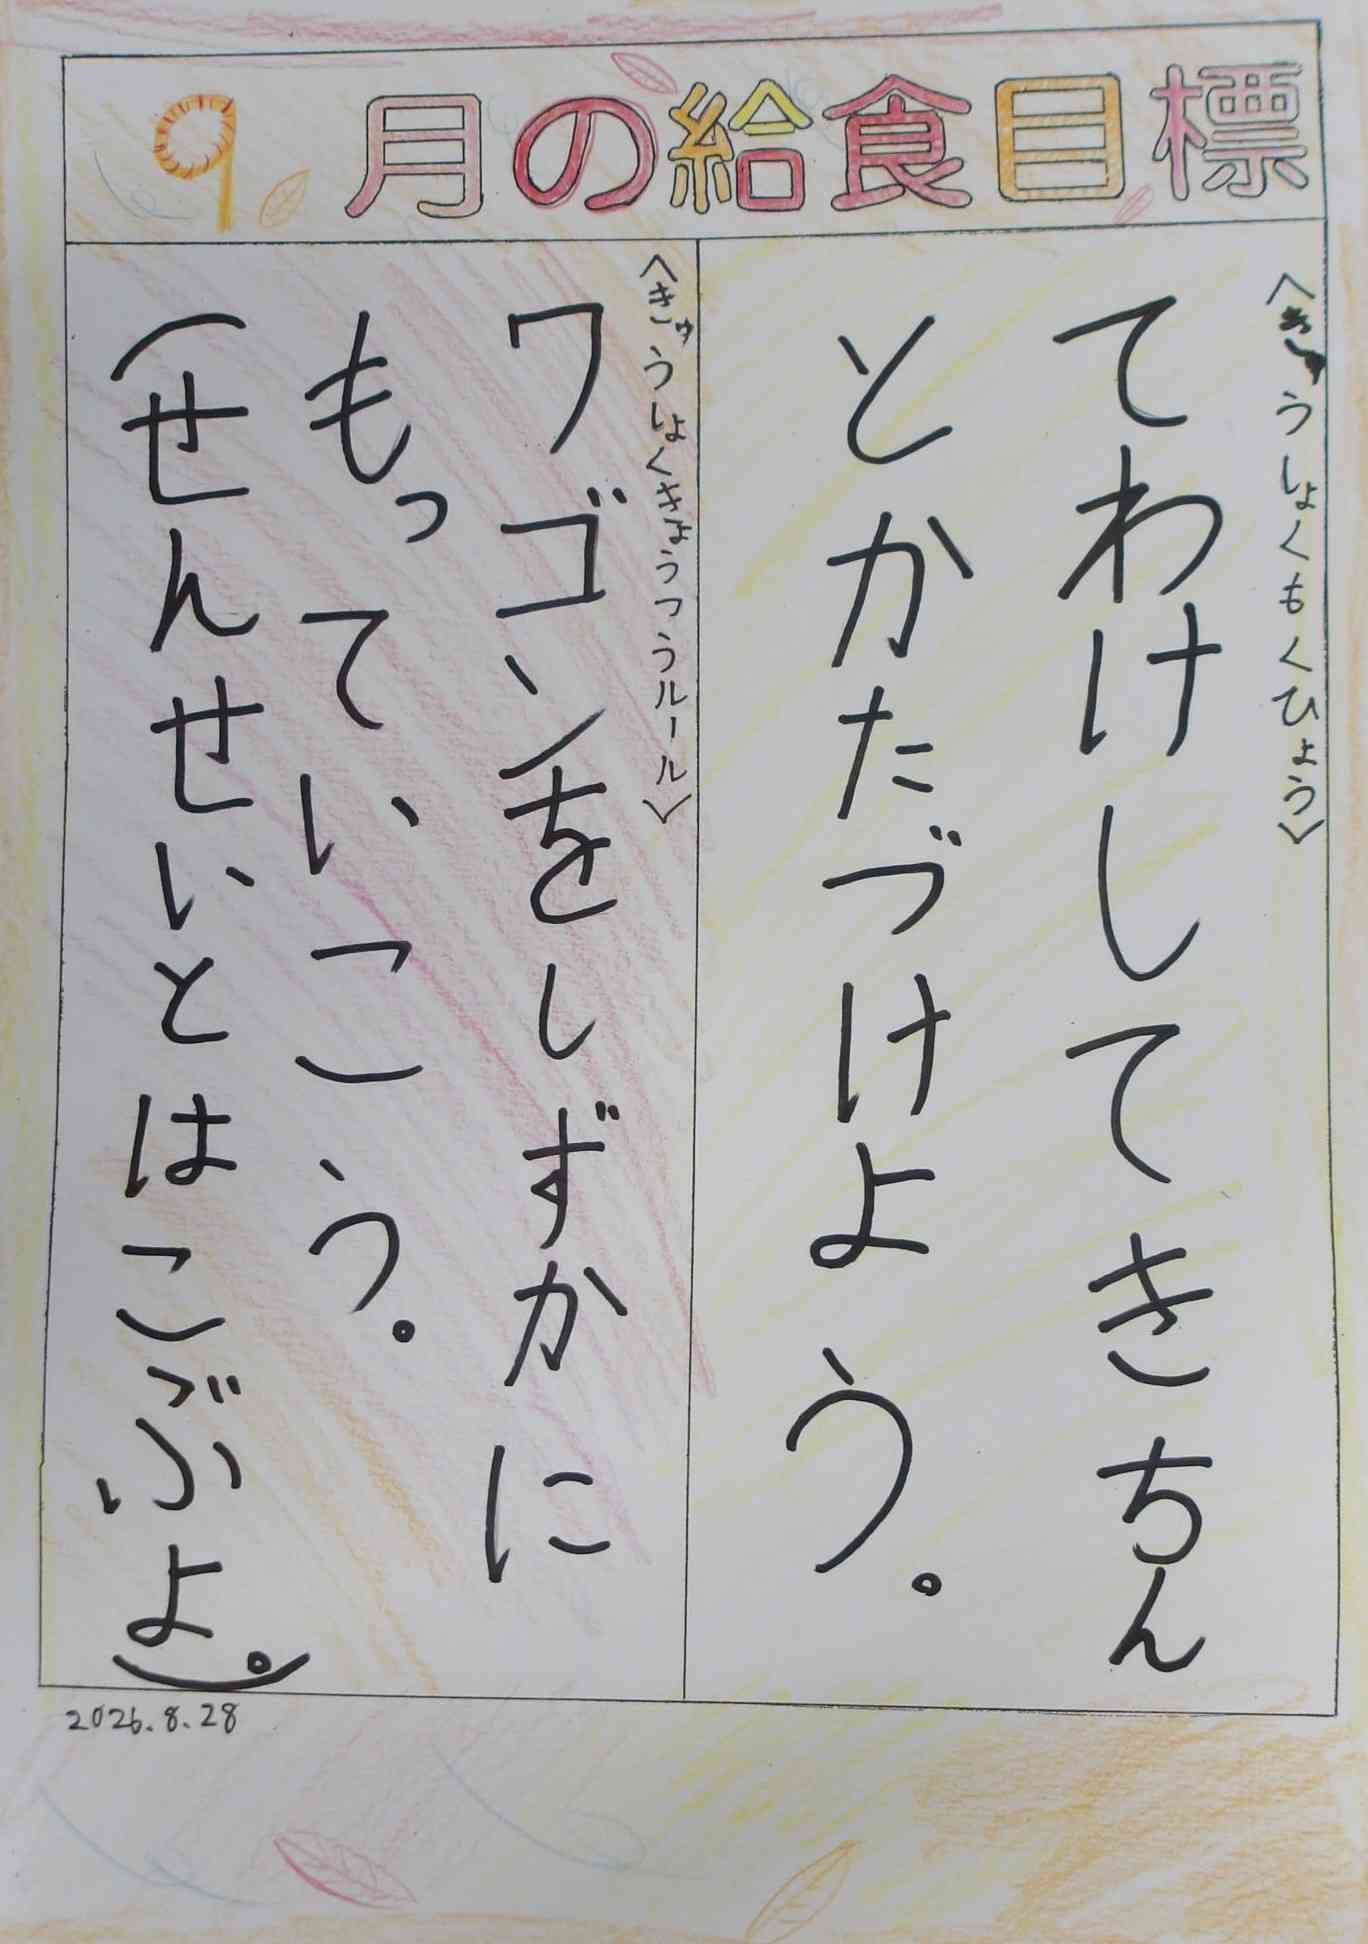 9月の給食目標
〈きゅうしょくもくひょう〉
てわけしてきちん
とかたづけよう。
〈きゅうしょくきょうつうルール〉
ワゴンをしずかに
もっていこう。
(せんせいとはこぶよ。)
2026.8.28